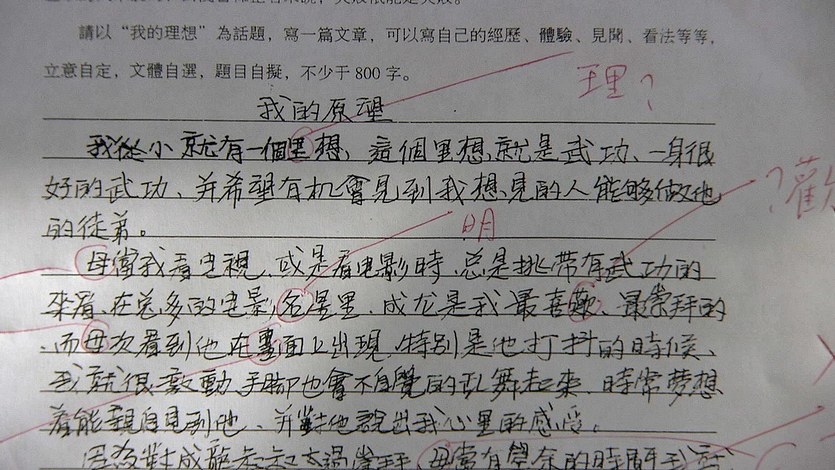 請以“我的理想”為話題，寫一篇文章，可以寫自己的經歷、體驗、見聞、看法等等，
立意自定，文體自選，題目自擬，不少于800字。
理？
我的原望
我從小就有一個里想，這個里想就是武功、一身很
好的武功、并希望有机會見到我想見的人能夠做他
的徒弟。
明
？歡
母當我看电視、或是看电影時、总是挑带有武功的
來看、在众多的电影名星里、成龙是我最喜歡、最崇拜的
、而母次看到他在畫面上出現、特別是他打抖的時候、
我就很激動、手脚也會不自覺的乱舞起來、時常梦想
着能親自見到他、并對他說出我心里的感受。
因為對成龍
母當有學余的時間